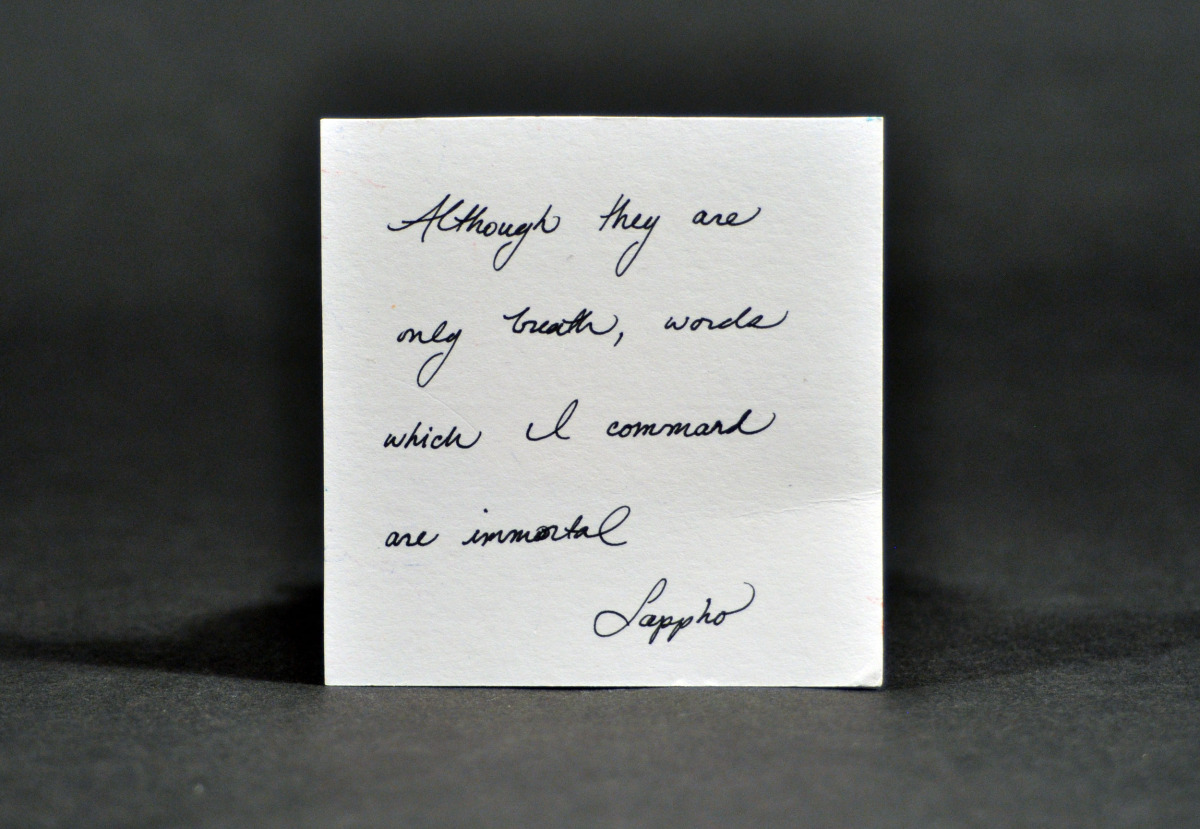 Although they are
only breath, words
which I command
are immortal
Sappho